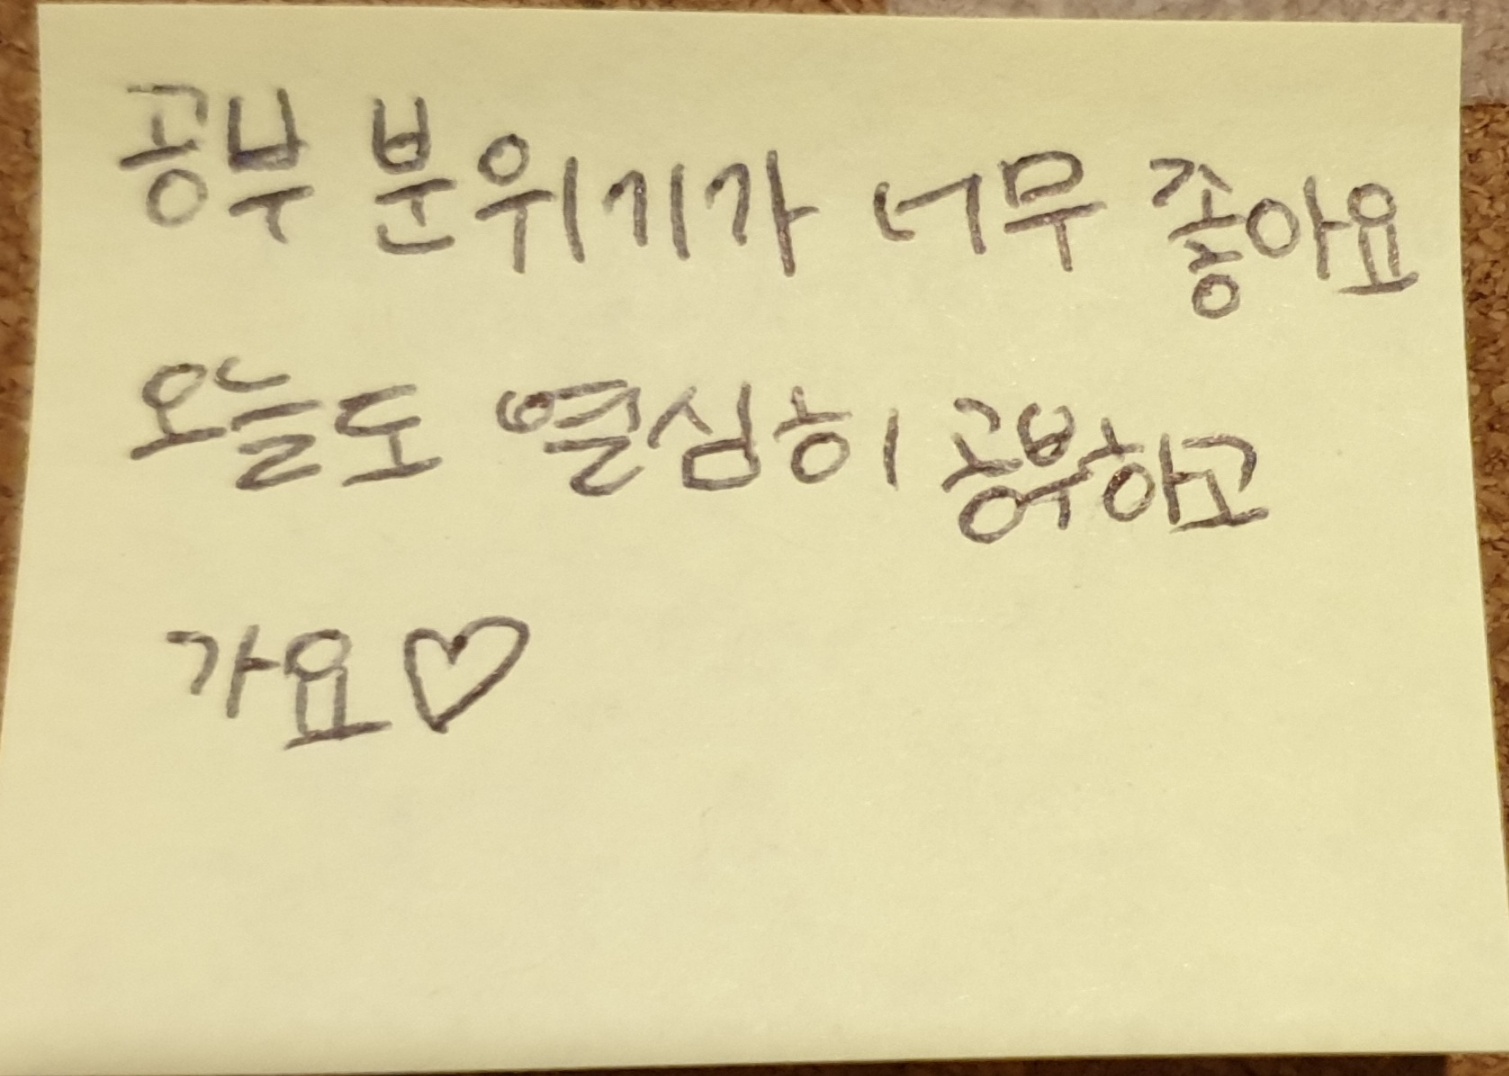 공부 분위기가 너무 좋아요
오늘도 열심히 공부하고
가요♡